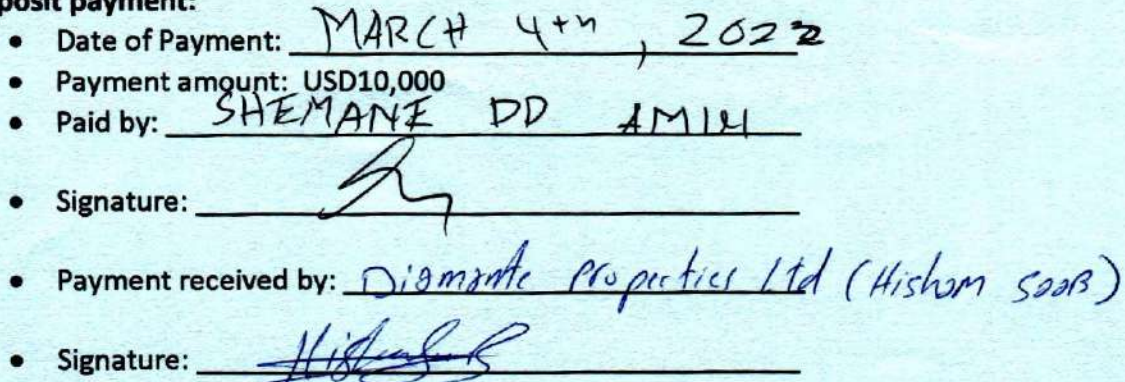 posit payment:
• Date of Payment: MARCH 4th, 2022
• Payment amount: USD10,000
• Paid by: SHEMANE DD AMIN
• Signature:
• Payment received by: Diamante Properties Ltd (Hisham SaaB)
• Signature: